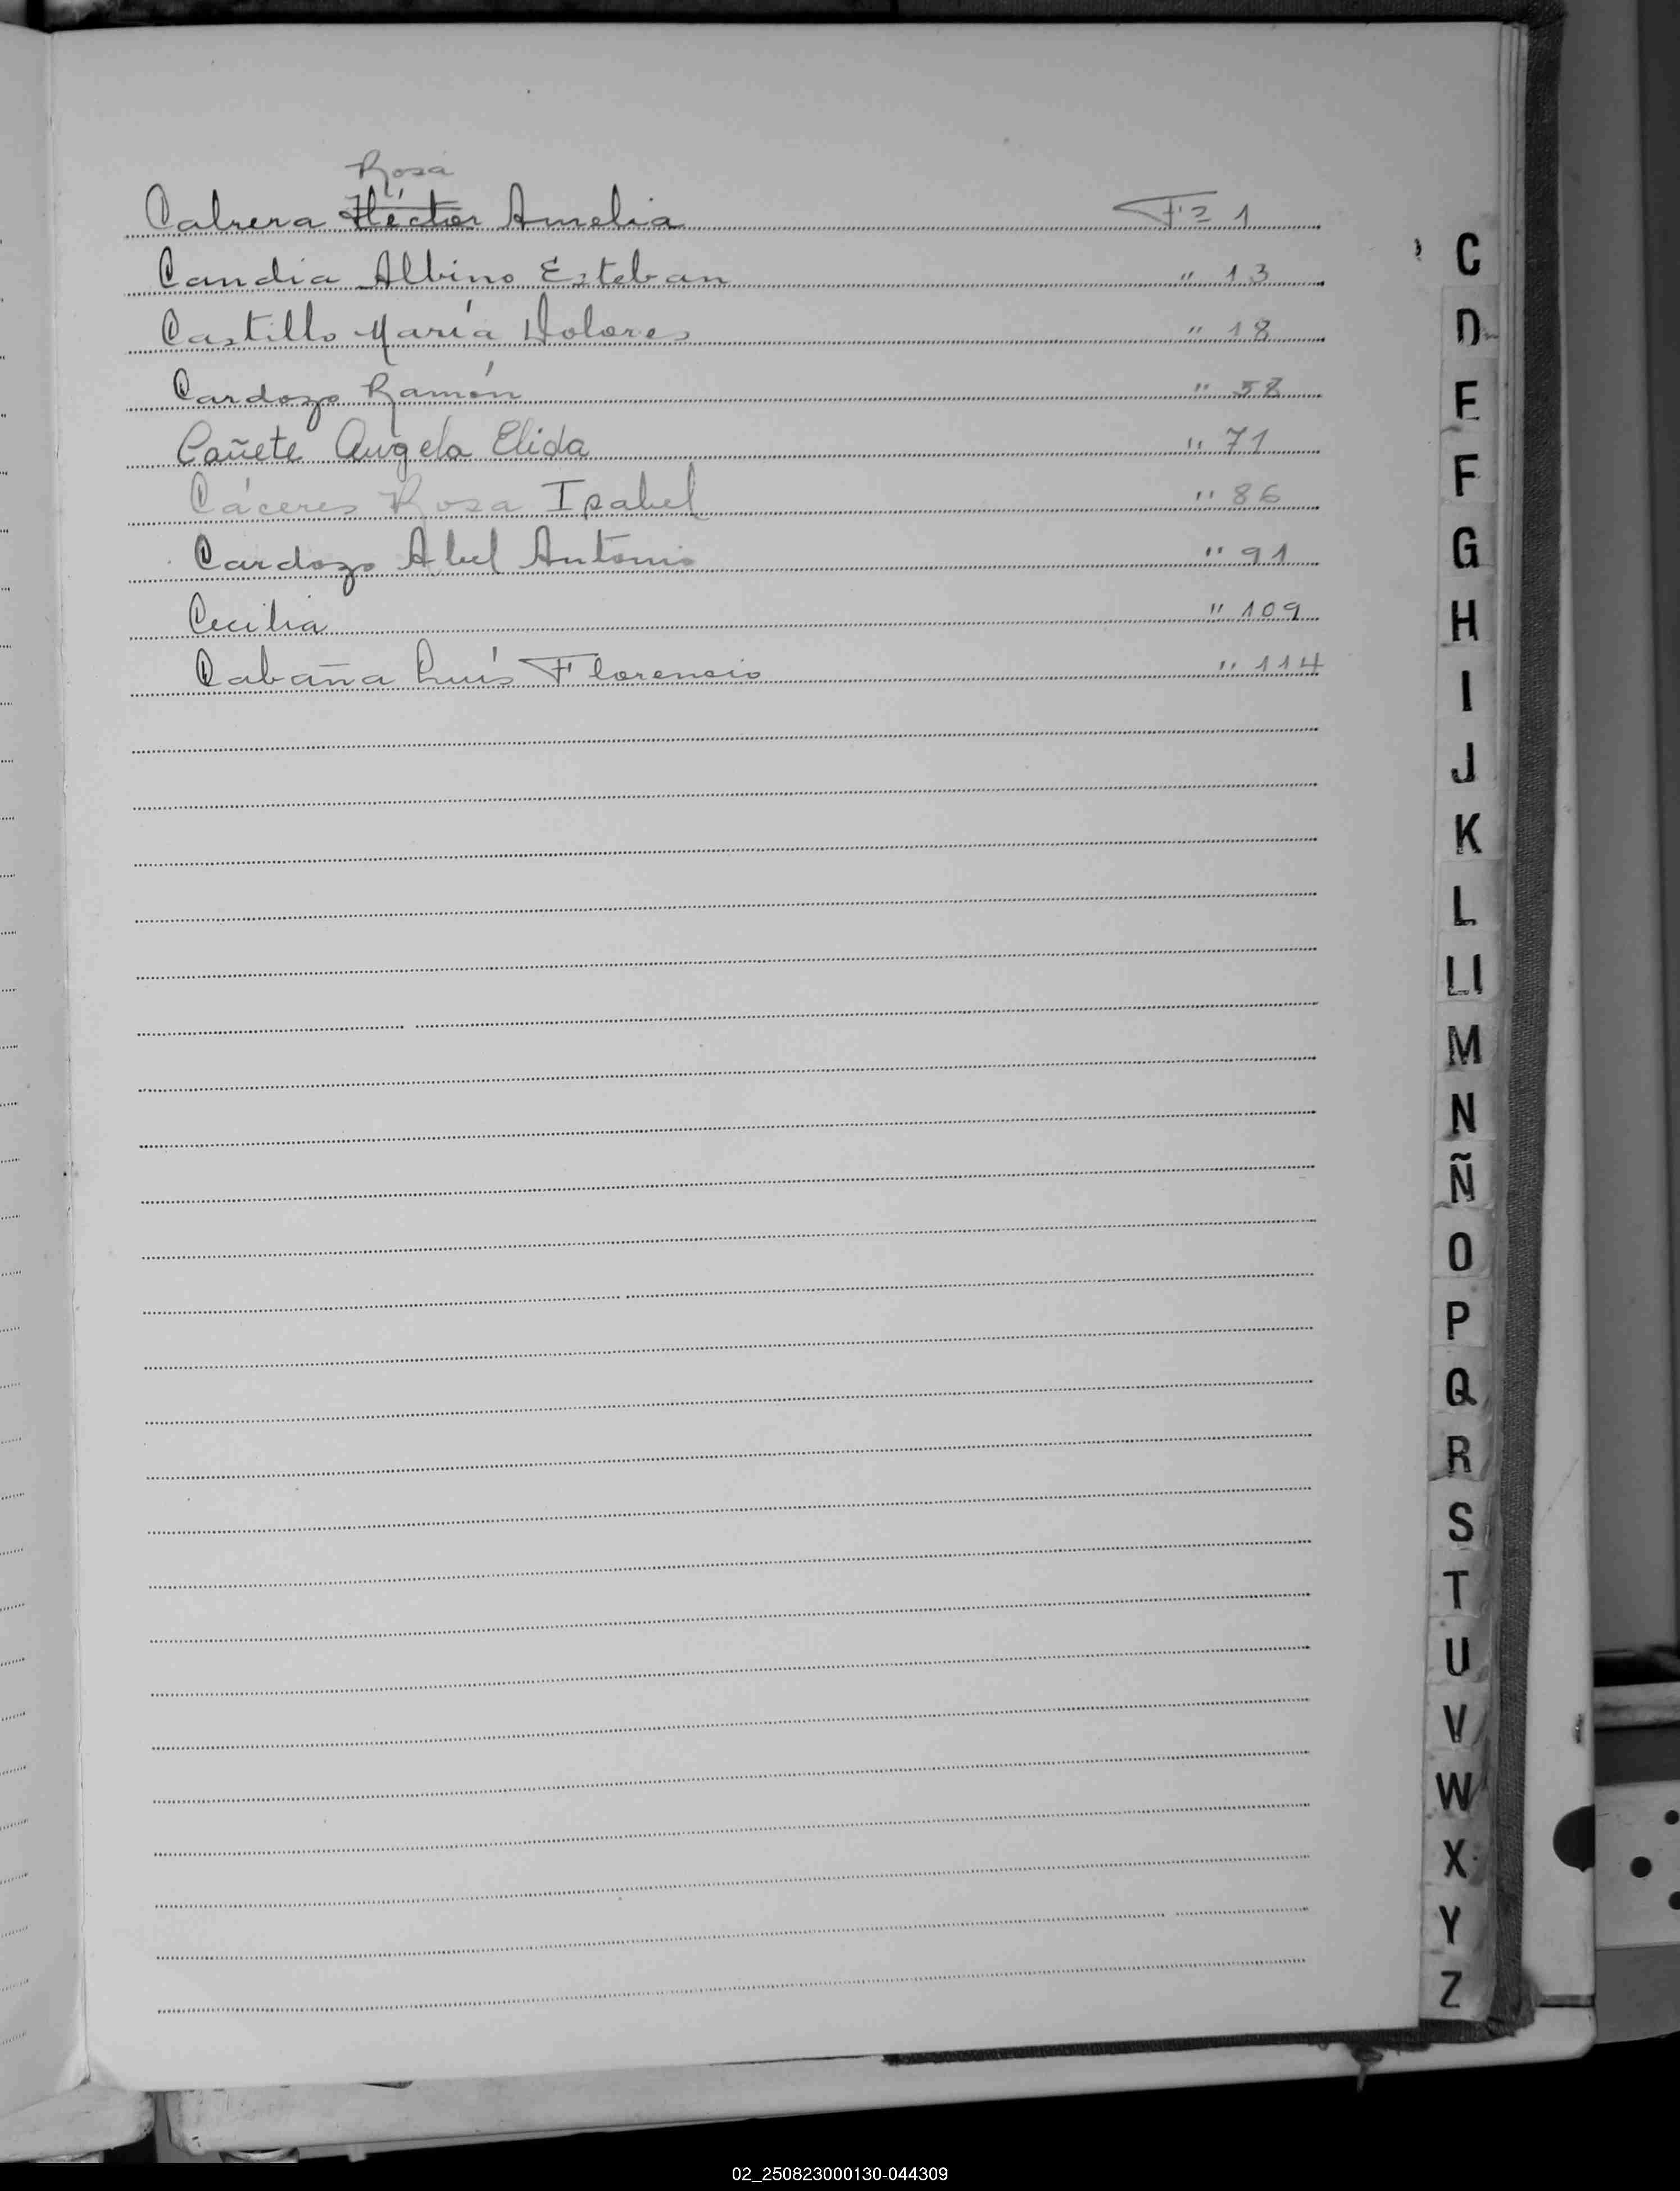 Rosa
Cabrera Héctor Amelia Fº 1
Candia Albino Esteban " 13
Castillo María Dolores " 18
Cardozo Ramón " 58
Cañete Angela Elida " 71
Cáceres Rosa Isabel " 86
Cardozo Abel Antonio " 91
Cecilia " 109
Cabaña Luís Florencio " 114
C
D
E
F
G
H
I
J
K
L
Ll
M
N
Ñ
O
P
Q
R
S
T
U
V
W
X
Y
Z
02_250823000130-044309